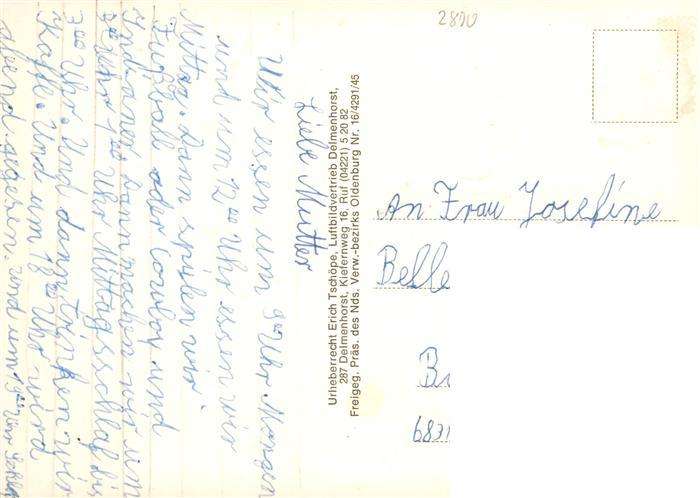 2800
Liebe Mutter
Uhr essen um 9°° Uhr Morgen
und um 12°° Uhr essen wir
Mittag. Dann spielen wir
Fußball oder Cowboy und
Indianer dann machen wir um
Uhr 1°° Uhr Mittagsschlaf bis
3°° Uhr. Und dann Trinken wir
Kaffe. Und um 18°° Uhr wird
abend gegesen. und um 19°° Uhr
Urheberrecht Erich Tschöpe, Luftbildvertrieb Delmenhorst,
287 Delmenhorst, Kiefernweg 16, Ruf (04221) 5 20 82
Freigeg. Präs. des Nds. Verw.-bezirks Oldenburg Nr. 16/4291/45
An Frau Josefine
Belle
B
6831